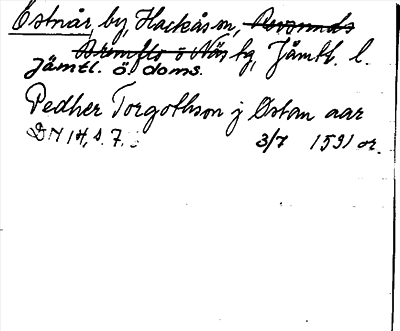 Östnår, by, Hackås sn, Revsunds
Brunflo o Näs tg, Jämtl. l.
Jämtl. ö. doms.
Pedher Torgothson j Østan aar
DN 14, s. 7. 3/7 1591 or.